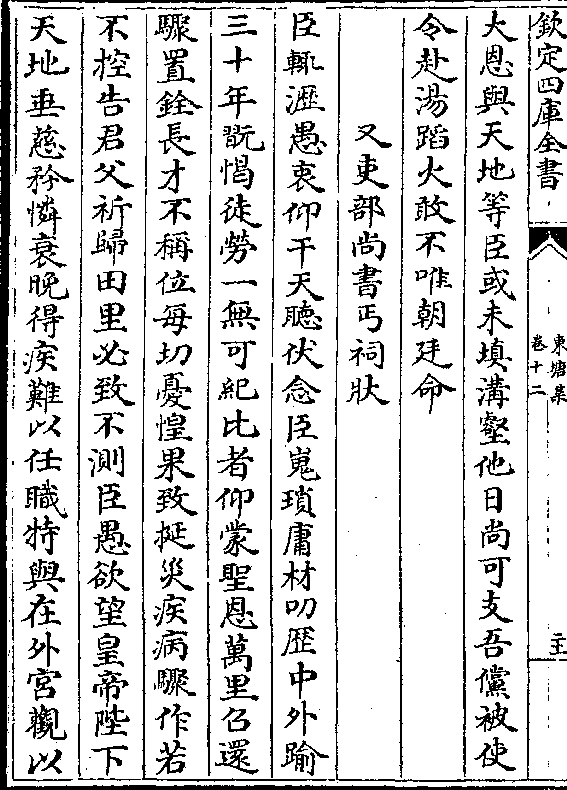 欽定四庫全書
東塘集
卷十二
大恩與天地等臣或未填溝壑他日尚可支吾儻被使
令赴湯蹈火敢不唯朝廷命
又吏部尚書丐祠狀
臣輒瀝愚衷仰干天聽伏念臣嵬瑣庸材叨歴中外踰
三十年既愒徒勞一無可紀比者仰蒙聖恩萬里召還
驟置銓長才不稱位每切憂惶果致挻災疾病驟作若
不控告君父祈歸田里必致不測臣愚欲望皇帝陛下
天地垂慈矜憐衰晚得疾難以任職特與在外宮觀以